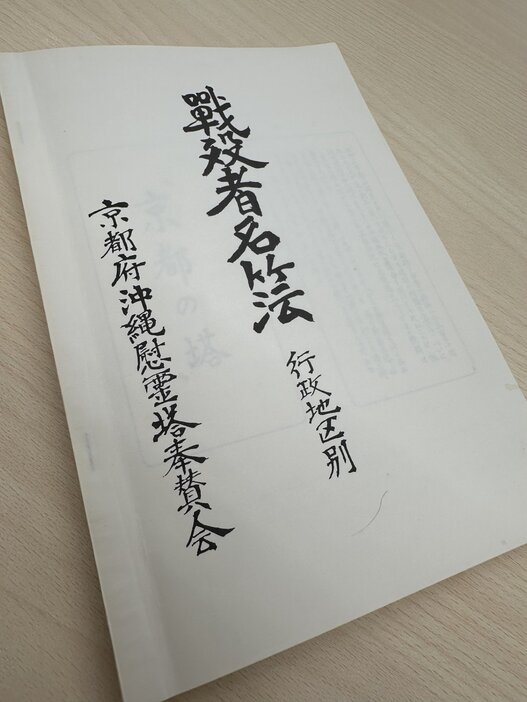 戰殁者名簿
行政地区別
京都府沖縄慰霊塔奉賛会
京都の塔